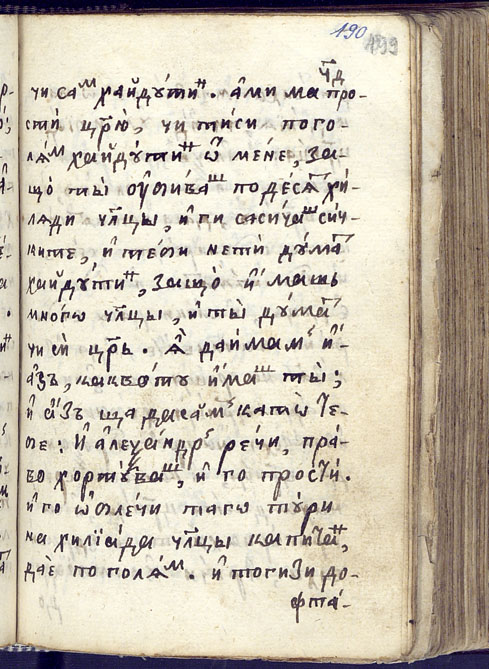 190
199
ч҃д
чи са́мъ хайду́тинⷩ. а́ми ма про-
сти́ цр҃ю, чи ти си пого-
ля́мⷨ хайду́тинⷩ ѿ ме́не, за-
що́ ты̀ ѹби́вашⷲ по де́сетⷮ хи-
ляди чл҃цы, и҆ ги сасича́шⷲ си́ч-
ките, и҆ тебѝ нетѝ ду́матⷮ
хайду́тинⷩ, защо̀ и҆́машь
мно́гѡ чл҃цы, и҆ ты̀ ду́матⷮ
чи сѝ цр҃ь. А҆̀ да и́мамⷨ и҆-
а҆зъ, какво́то и҆́машⷲ ты̀;
и҆ а҆́зъ ща да са́мⷨ като̀ те-
бе: И҆ а҆леѯа́ндрⷬ рѐчи, пра́-
во хорту́вашⷲ, и҆ го простѝ.
и҆ го ѡ҆блѐчи тагѡ тꙋ́ри
на хилїа́да чл҃цы капита́нⷩ,
даѐ по голя́мⷨ. и҆ тогизи до-
фта́-